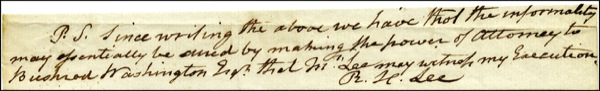 P.S. Since writing the above we have thot the informality
may essentially be cured by making the power of Attorney to
Bushrod Washington Esqr. that Mr. Lee may witness my Execution.
R. H. Lee